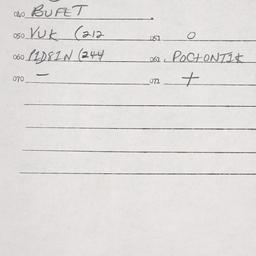 040 BUFET
050 VUK (212 051 0
060 PIDEIN (244 061. POCTONTIK
070 - 071 +